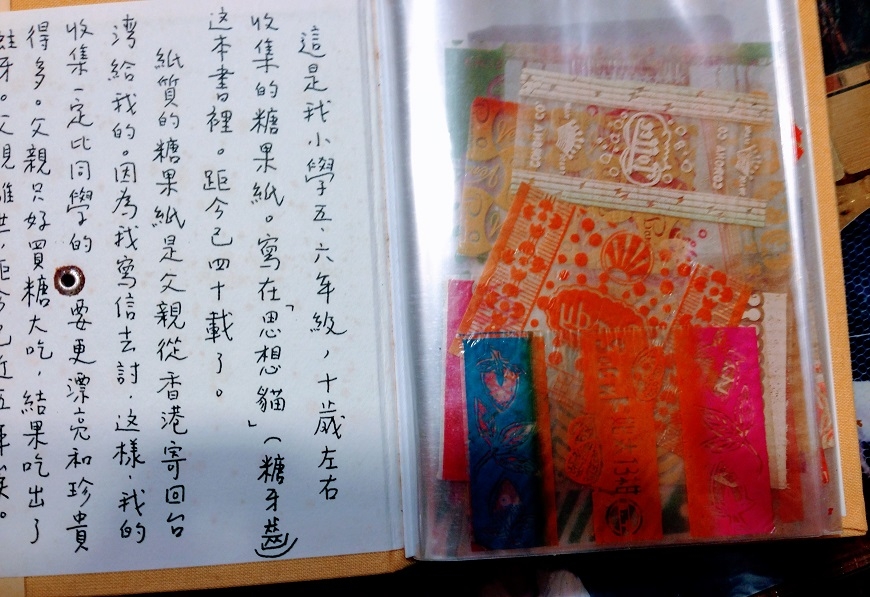 這是我小學五、六年級，十歲左右
收集的糖果紙。寫在「思想貓」（糖牙齒）
這本書裡。距今已四十載了。
紙質的糖果紙是父親從香港寄回台
灣給我的。因為我寫信去討，這樣，我的
收集一定比同學的要更漂亮和珍貴
得多。父親只好買糖大吃，結果吃出了
蛀牙。父親離世，距今已近五年
COMDITY CO
COMDITY CO